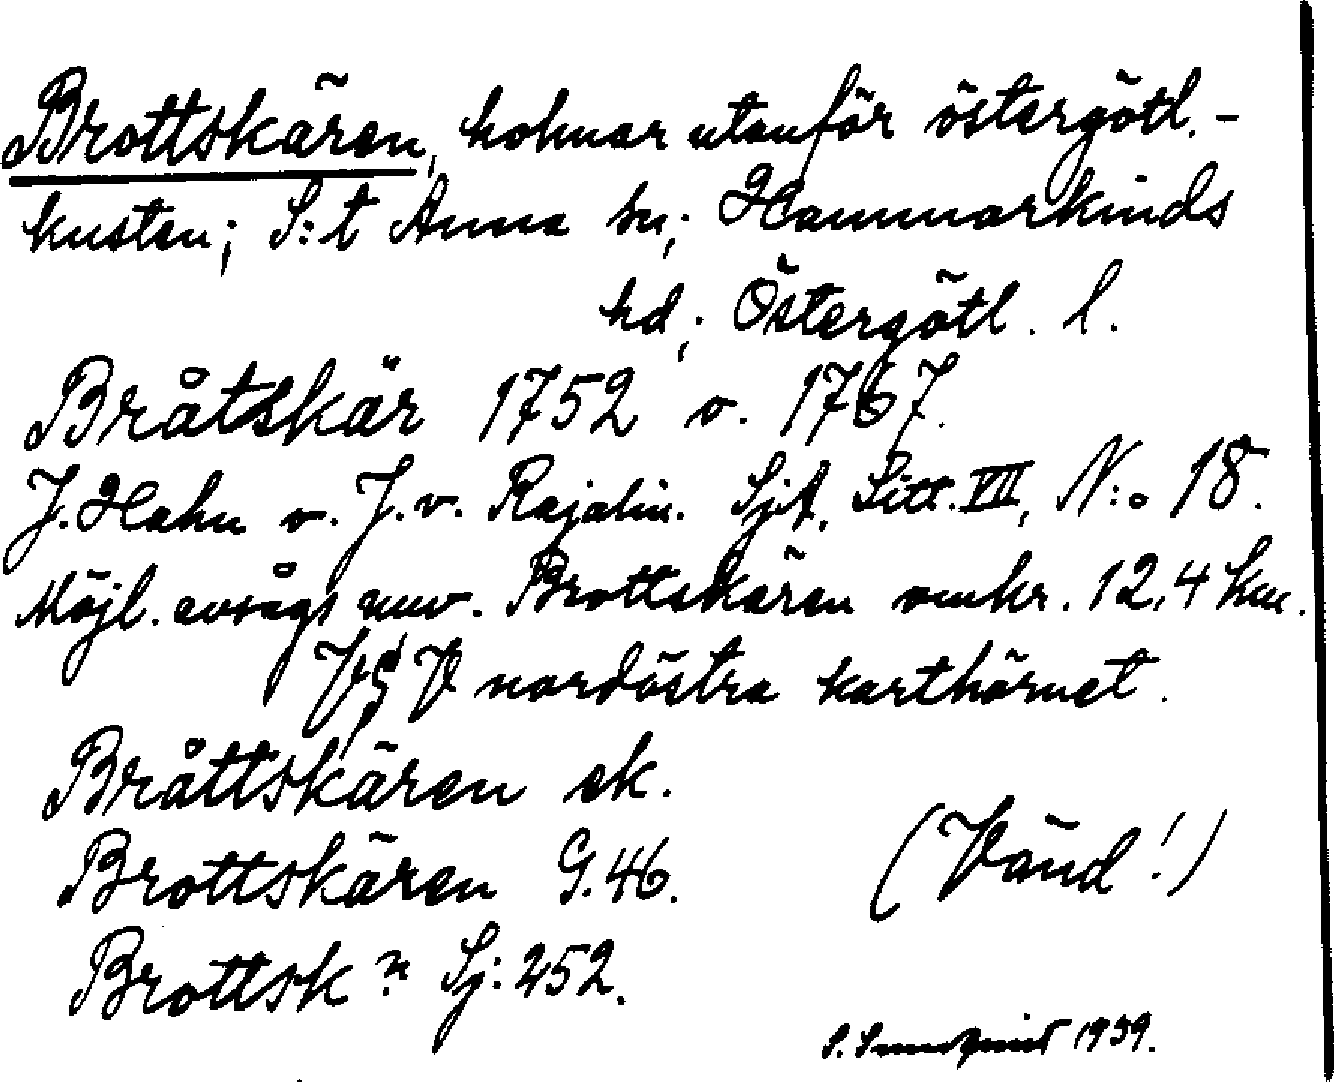 Brottskären, holmar utanför östergötl.-
kusten; S:t Anna sn; Hammarkinds
hd; Östergötl. l.
Bråtskär 1752 o. 1767.
J. Hahn o. J. v. Rajalin. Sjk. Litt. VII, N:o 18.
Möjl. avsågs nuv. Brottskären omkr. 12,4 km.
V§V nordöstra karthörnet.
Bråttskären ek.
Brottskären G. 46.
(Vänd!)
Brottsk n Sj: 252.
1939.